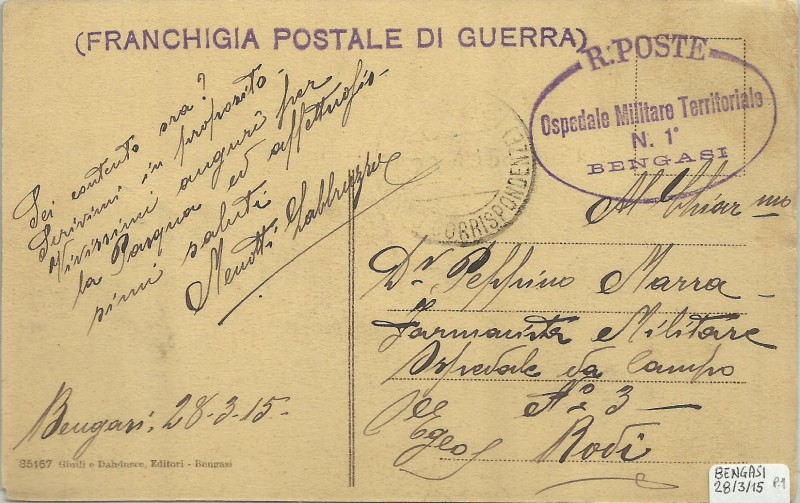 (FRANCHIGIA POSTALE DI GUERRA)
R. POSTE
Ospedale Militare Territoriale
N. 1°
BENGASI
CORRISPONDENZE
Sei contento ora?
Scrivimi in proposito.
Vivissimi auguri per
la Pasqua ed affettuosis-
simi saluti
Menotti
Bengasi, 28-3-15-
Al Chiar.mo
Dr. Peppino Marra
Farmacista Militare
Ospedale da Campo
No 3
Egeo Rodi
35167 Giuili e Dahdusce, Editori - Bengasi
BENGASI
28/3/15 P.1